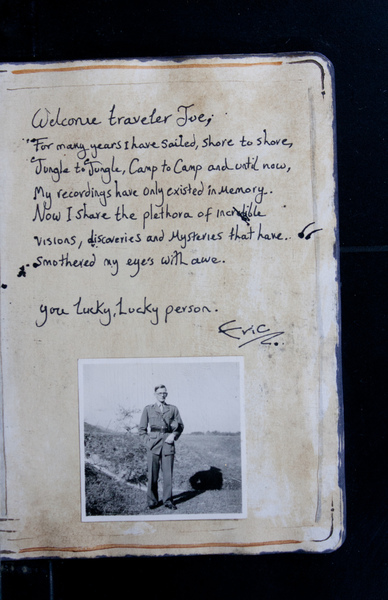 Welcome traveler Joe,
"For many years I have sailed, shore to shore,
Jungle to Jungle, Camp to Camp and until now,
My recordings have only existed in memory.
Now I share the plethora of incredible
visions, discoveries and Mysteries that have..
smothered my eye's with awe.
you Lucky, Lucky person.
Eric